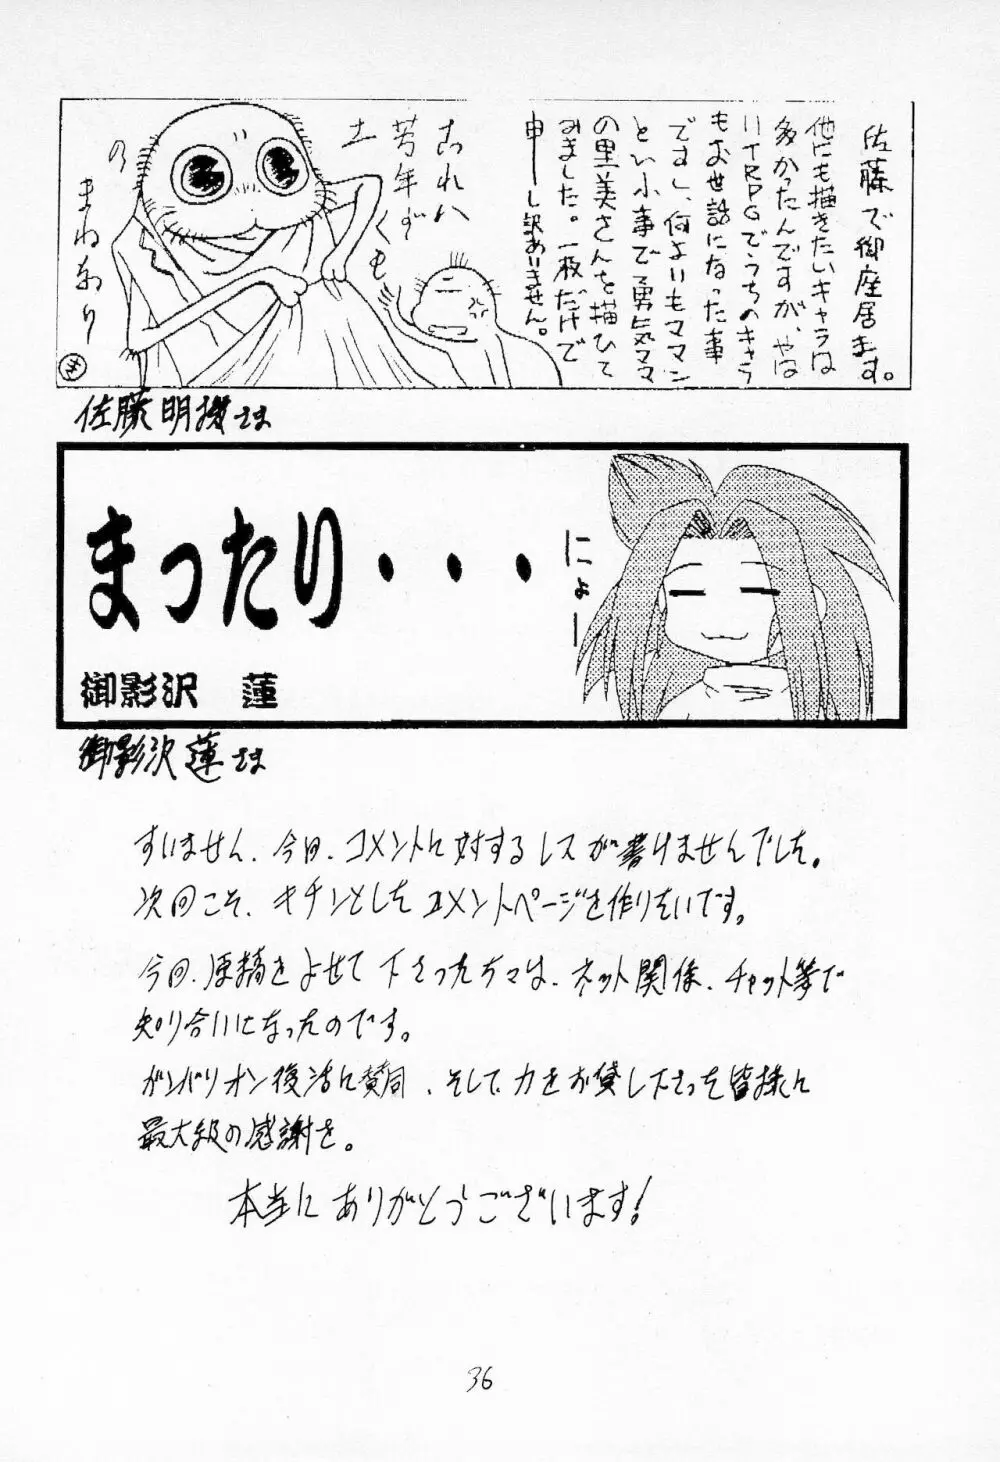 佐藤で御座居ます。
他にも描きたいキャラは
多かったんですが、やは
りTRPGでうちのキャラ
もお世話になった事
ですし、何よりもママン
という事で勇気ママ
の里美さんを描いて
みました。一枚だけで
申ーし訳ありません。
まねあり
佐藤明機さま
まったり・・・
にょー
御影沢 蓮
御影沢蓮さま
すいません、今回、コメントに対するレスが書けませんでした。
次回こそ、キチンとしたコメントページを作りたいです。
今回、原稿をよせて下さった方々は、ネット関係、チャット等で
知り合いになったのです。
ガンバリオン復活に賛同、そして、力をお貸し下さった皆様に
最大級の感謝を。
本当にありがとうございます!
36